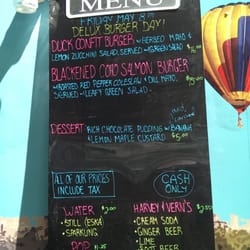 MENU
FRIDAY MAY 8TH
DELUX BURGER DAY!
DUCK CONFIT BURGER - HERBED MAYO &
LEMON ZUCCHINI SALAD. SERVED W/GREEN SALAD
BLACKENED COHO SALMON BURGER
ROASTED RED PEPPER COLESLAW & DILL MAYO.
SERVED W/LEAFY GREEN SALAD -
DESSERT RICH CHOCOLATE PUDDING W/ BANANA
& LEMON MAPLE CUSTARD $5.00
ALL OF OUR PRICES
INCLUDE TAX
CASH
ONLY
WATER $2.00
- STILL (ESKA)
- SPARKLING
POP $1.25
HARVEY & VERN'S $3.00
- CREAM SODA
- GINGER BEER
- LIME
- ROOT BEER